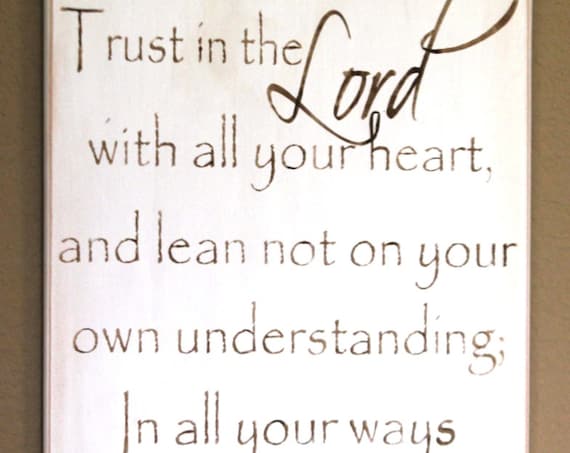 Trust in the Lord
with all your heart,
and lean not on your
own understanding;
In all your ways